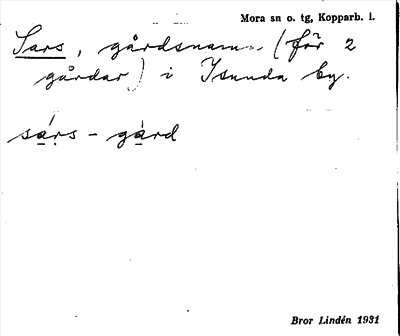 Mora sn o. tg, Kopparb. l.
Sars, gårdsnamn (för 2
gårdar) i Isunda by.
sárs - gárd
Bror Lindén 1931